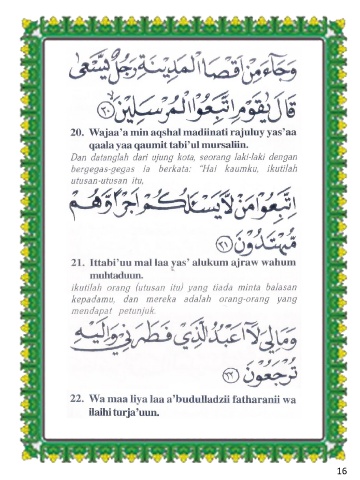 وَجَآءَ مِنْ اَقْصَا الْمَدِيْنَةِ رَجُلٌ يَّسْعٰى
قَالَ يٰقَوْمِ اتَّبِعُوا الْمُرْسَلِيْنَ ﴿٢٠﴾
20. Wajaa'a min aqshal madiinati rajuluy yas'aa
qaala yaa qaumit tabi'ul mursaliin.
Dan datanglah dari ujung kota, seorang laki-laki dengan
bergegas-gegas ia berkata: "Hai kaumku, ikutilah
utusan-utusan itu,
اتَّبِعُوْا مَنْ لَّا يَسْـَٔلُكُمْ اَجْرًا وَّهُمْ
مُّهْتَدُوْنَ ﴿٢١﴾
21. Ittabi'uu mal laa yas' alukum ajraw wahum
muhtaduun.
ikutilah orang (utusan itu) yang tiada minta balasan
kepadamu, dan mereka adalah orang-orang yang
mendapat petunjuk.
وَمَا لِيَ لَآ اَعْبُدُ الَّذِيْ فَطَرَنِيْ وَاِلَيْهِ
تُرْجَعُوْنَ ﴿٢٢﴾
22. Wa maa liya laa a'budulladzii fatharanii wa
ilaihi turja'uun.
16